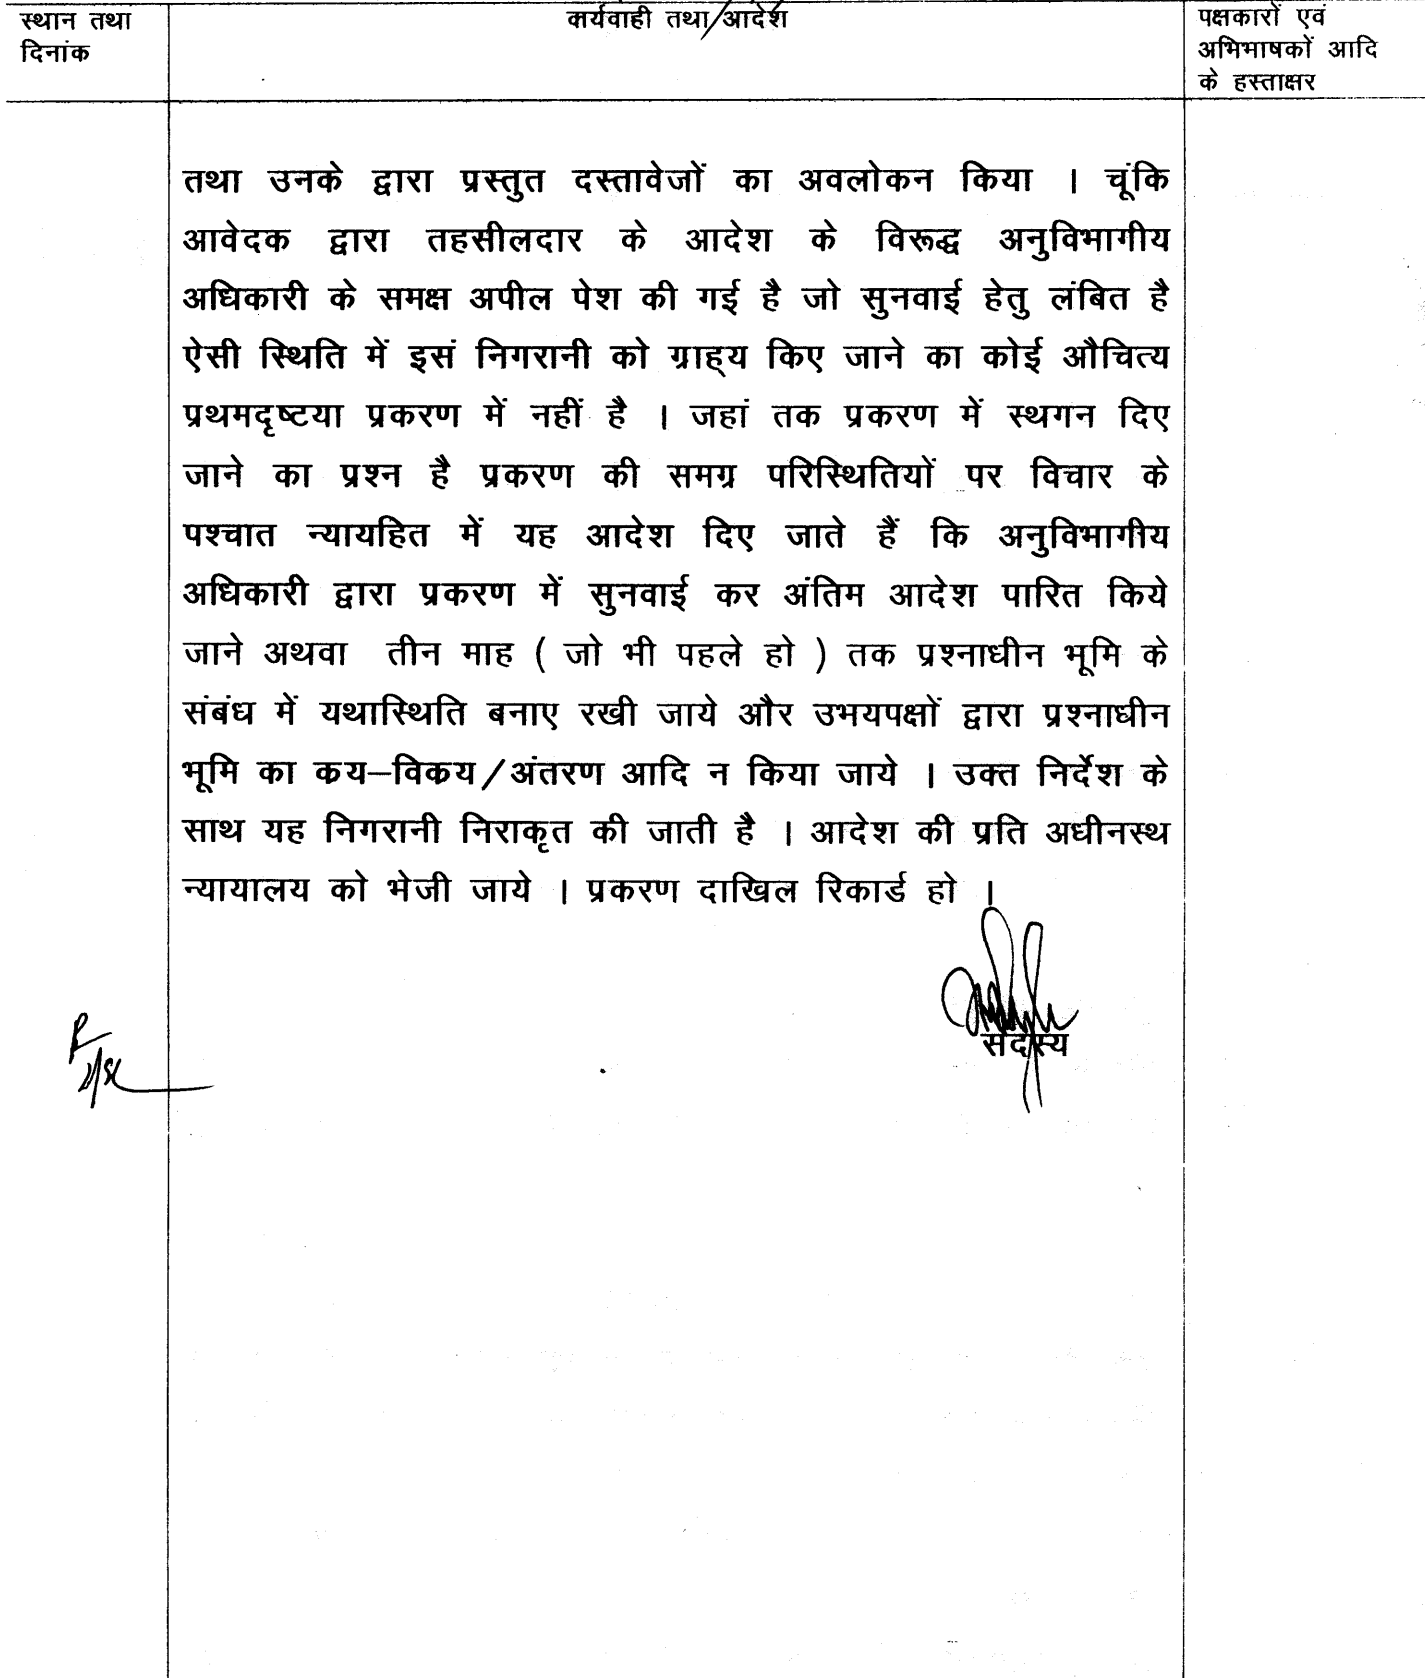 स्थान तथा
दिनांक
कार्यवाही तथा/आदेश
पक्षकारों एवं
अभिभाषकों आदि
के हस्ताक्षर
तथा उनके द्वारा प्रस्तुत दस्तावेजों का अवलोकन किया । चूंकि
आवेदक द्वारा तहसीलदार के आदेश के विरूद्ध अनुविभागीय
अधिकारी के समक्ष अपील पेश की गई है जो सुनवाई हेतु लंबित है
ऐसी स्थिति में इसं निगरानी को ग्राह्य किए जाने का कोई औचित्य
प्रथमदृष्टया प्रकरण में नहीं है । जहां तक प्रकरण में स्थगन दिए
जाने का प्रश्न है प्रकरण की समग्र परिस्थितियों पर विचार के
पश्चात न्यायहित में यह आदेश दिए जाते हैं कि अनुविभागीय
अधिकारी द्वारा प्रकरण में सुनवाई कर अंतिम आदेश पारित किये
जाने अथवा तीन माह ( जो भी पहले हो ) तक प्रश्नाधीन भूमि के
संबंध में यथास्थिति बनाए रखी जाये और उभयपक्षों द्वारा प्रश्नाधीन
भूमि का कय–विकय/अंतरण आदि न किया जाये । उक्त निर्देश के
साथ यह निगरानी निराकृत की जाती है । आदेश की प्रति अधीनस्थ
न्यायालय को भेजी जाये । प्रकरण दाखिल रिकार्ड हो ।
सदस्य